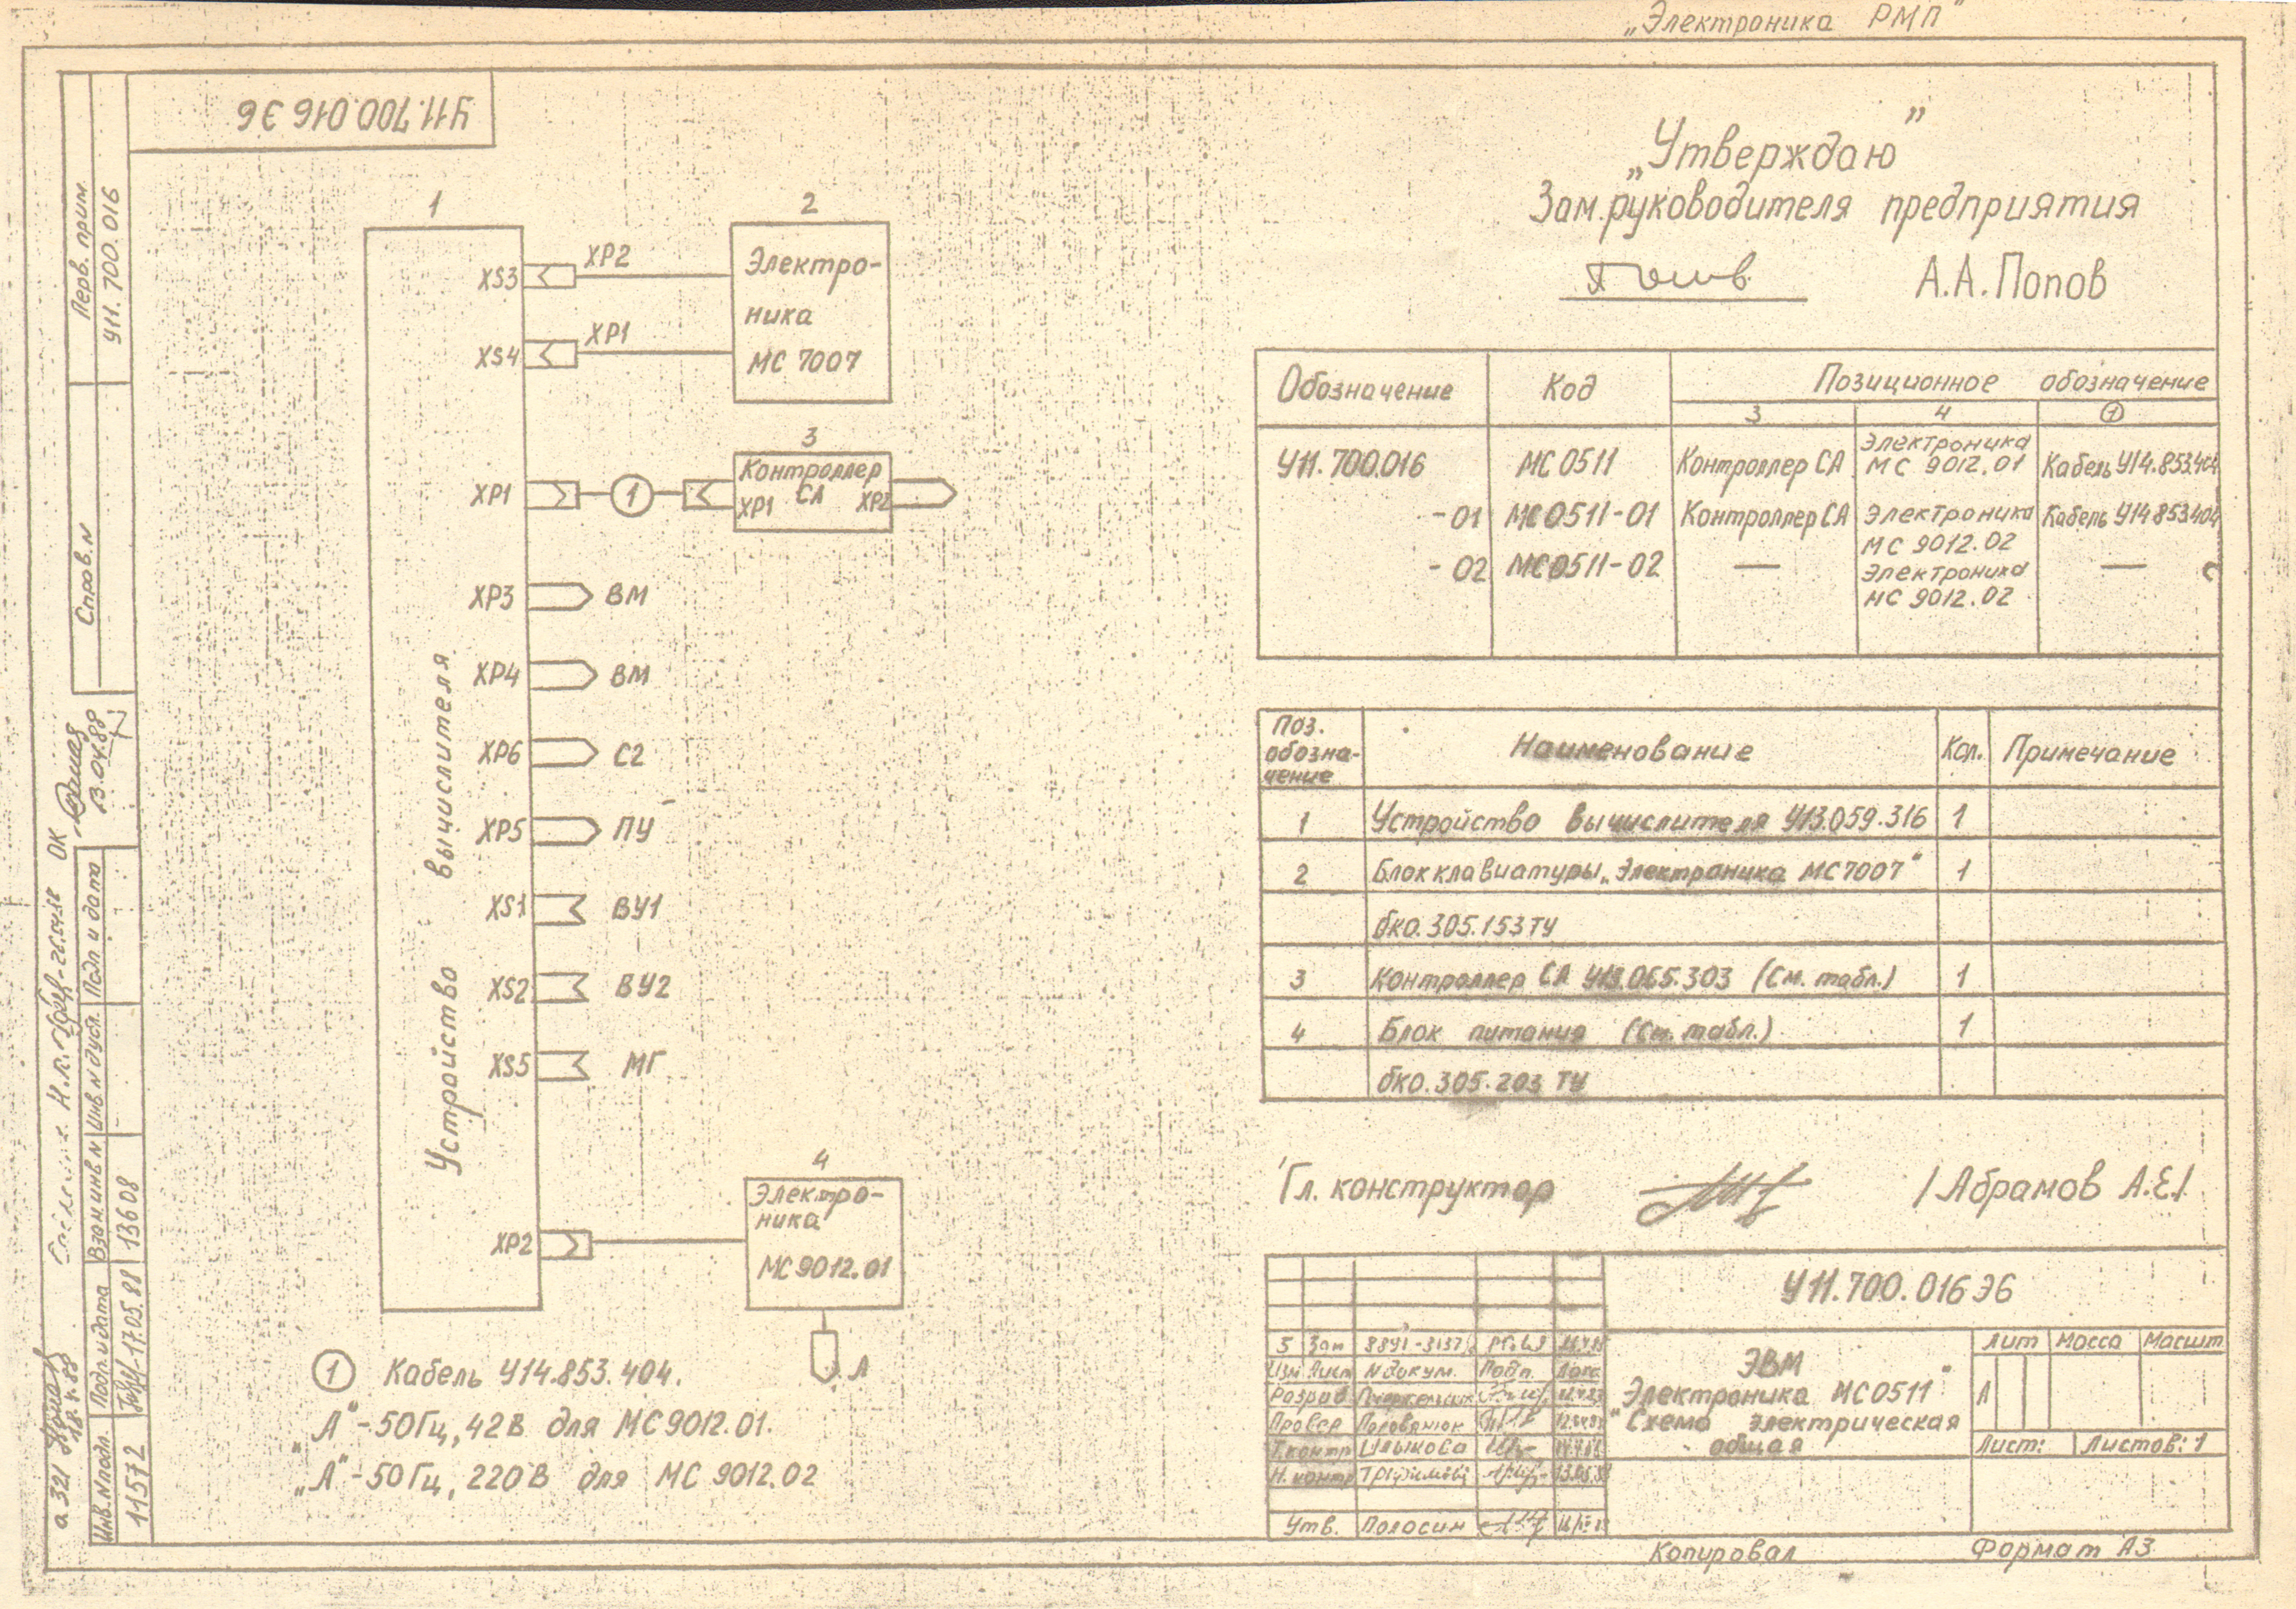 „Электроника РМП"
У11.700.016 Э6
Перв. прим.
У11.700.016
Справ. N
13.04.88
ОК
Подп. и дата
Инв N дубл.
Взам инв N
13608
Подп. и дата
17.05.88
Инв. N подл.
11572
а 321
„Утверждаю"
Зам. руководителя предприятия
А.А. Попов
1
Устройство вычислителя
XS3
XP2
XS4
XP1
2
Электро-
ника
МС 7007
3
Контроллер
СА
XP1
XP2
XP1
1
XP3 ВМ
XP4 ВМ
XP6 С2
XP5 ПУ
XS1 ВУ1
XS2 ВУ2
XS5 МГ
XP2
4
Электро-
ника
МС 9012.01
А
1 Кабель У14.853.404.
„А" - 50Гц, 42В для МС 9012.01.
„А" - 50Гц, 220В для МС 9012.02
Обозначение Код Позиционное обозначение
3 4 1
У11.700.016 МС 0511 Контроллер СА Электроника МС 9012.01 Кабель У14.853.404
-01 МС0511-01 Контроллер СА Электроника МС 9012.02 Кабель У14.853.404
-02 МС0511-02 — Электроника МС 9012.02 —
Поз. обозна-чение Наименование Кол. Примечание
1 Устройство вычислителя У13.059.316 1
2 Блок клавиатуры „Электроника МС7007" 1
бк0.305.153 ТУ
3 Контроллер СА У13.065.303 (См. табл.) 1
4 Блок питания (См. табл.) 1
бк0.305.203 ТУ
Гл. конструктор /Абрамов А.Е./
У11.700.016 Э6
5 Зам
Изм Лист N докум. Подп. Дата
Разраб
Провер Головянюк
Т.контр
Н. контр
Утв. Полосин
ЭВМ
„Электроника МС0511"
Схема электрическая
общая
Лит Масса Масшт
А
Лист: Листов: 1
Копировал Формат А3